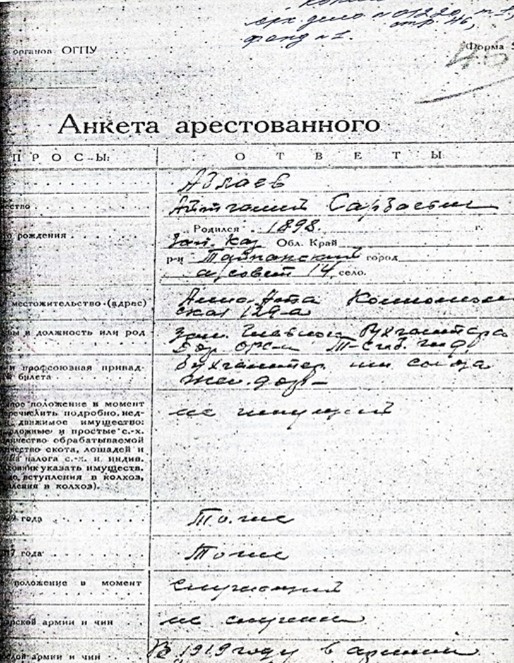 арх. дело № 01220, т. 1,
стр. 46,
фонд № 1.
органов ОГПУ
Форма
Анкета арестованного
ПРОСЫ:
ОТВЕТЫ
Аблаев
ство
Айтгалий
рождения
Родился 1898 г.
Зап. Каз Обл. Край
р-н Тайпакский город
а/совет 14 село.
местожительство (адрес)
Алма-Ата
ская 129-а
ы и должность или род
Зам. Главного Бухгалтера
и профсоюзная принад-
билета
Бухгалтер
жел. дор.
ное положение в момент
речислить подробно, нед-
движимое имущество:
ложные и простые с.-х.
ичество обрабатываемой
чество скота, лошадей и
налога с.-х. и индив.
указать имуществ.
вступления в колхоз,
ления в колхоз).
не имущий
года
То же
7 года
То же
положение в момент
служащий
арской армии и чин
не служил
елой армии и чин
В 1919 году в армии